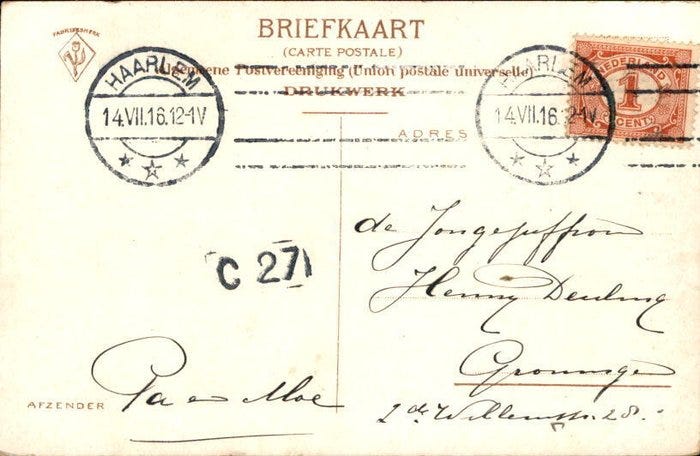 FABRIEKSMERK
BRIEFKAART
(CARTE POSTALE)
Algemeene Postvereeniging (Union postale universelle)
DRUKWERK
HAARLEM
14.VII.16.12-1V
HAARLEM
14.VII.16.12-1V
NEDERLAND
1
CENT
ADRES
de Jongejuffrou
Henny Deuling
Groningen
2de Willemstr. 28.
C 271
AFZENDER
Pa en Moe